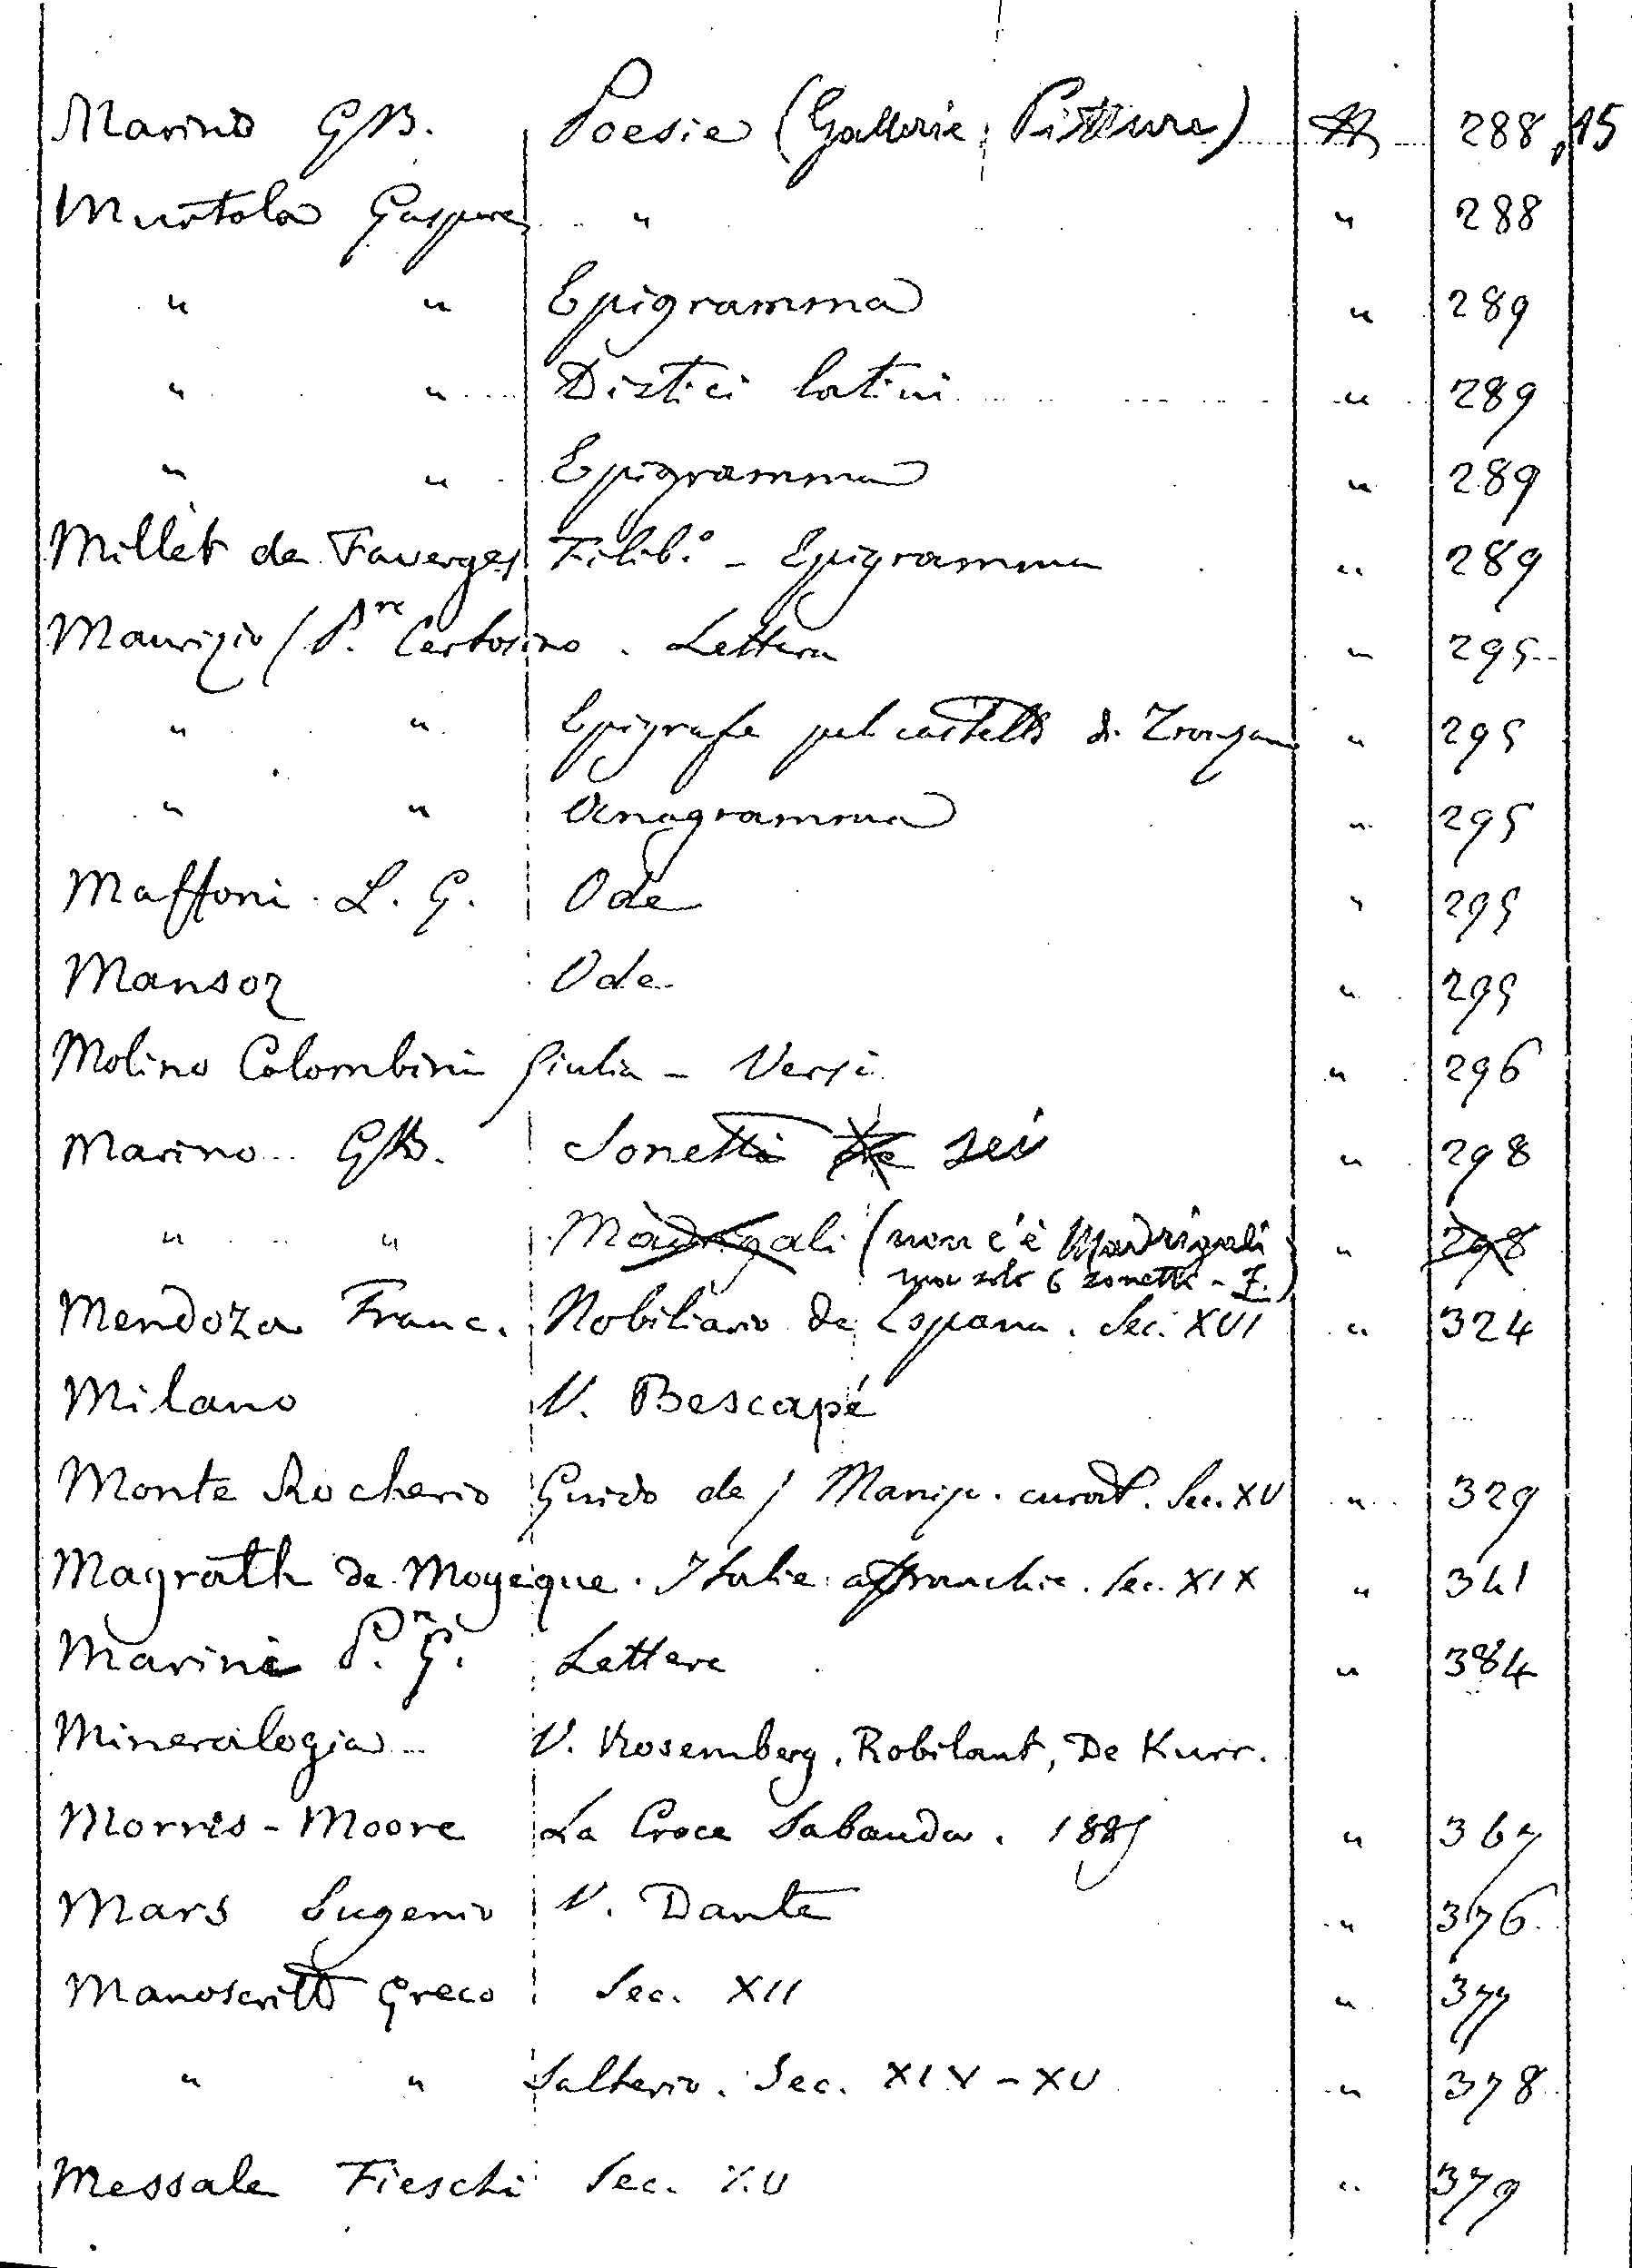 Marino GB. Poesie (Gallerie, Pitture) 288,15
Murtola Gaspare " " 288
" " Epigramma " 289
" " Distici latini " 289
" " Epigramma " 289
Millet de Faverges Filib.º - Epigramma " 289
Maurizio (P.re Certosino . Lettera " 295
" " Epigrafe pel castello di " 295
" " Anagramma " 295
Maffoni L. G. Ode " 295
Mansoz Ode " 295
Molino Colombini Giulia - Versi " 296
Marino GB. Sonetti tre sei " 298
" " Madrigali (non c'è Madrigali " 298
ma solo 6 sonetti - F.)
Mendoza Franc. Nobiliario de Espana. Sec. XVI " 324
Milano V. Bescapé
Monte Rocherio Guido de / Manip. curat. Sec. XV " 329
Magrath de Moyeque . Italie affranchie. Sec. XIX " 341
Marini P. G. Lettere " 384
Mineralogia V. Rosemberg, Robilant, De Kurr.
Morris - Moore La Croce Sabauda. 1885 " 367
Mars Eugenio V. Dante " 376
Manoscritto Greco Sec. XII " 377
" " Salterio. Sec. XIV - XV " 378
Messale Fieschi Sec. XV " 379